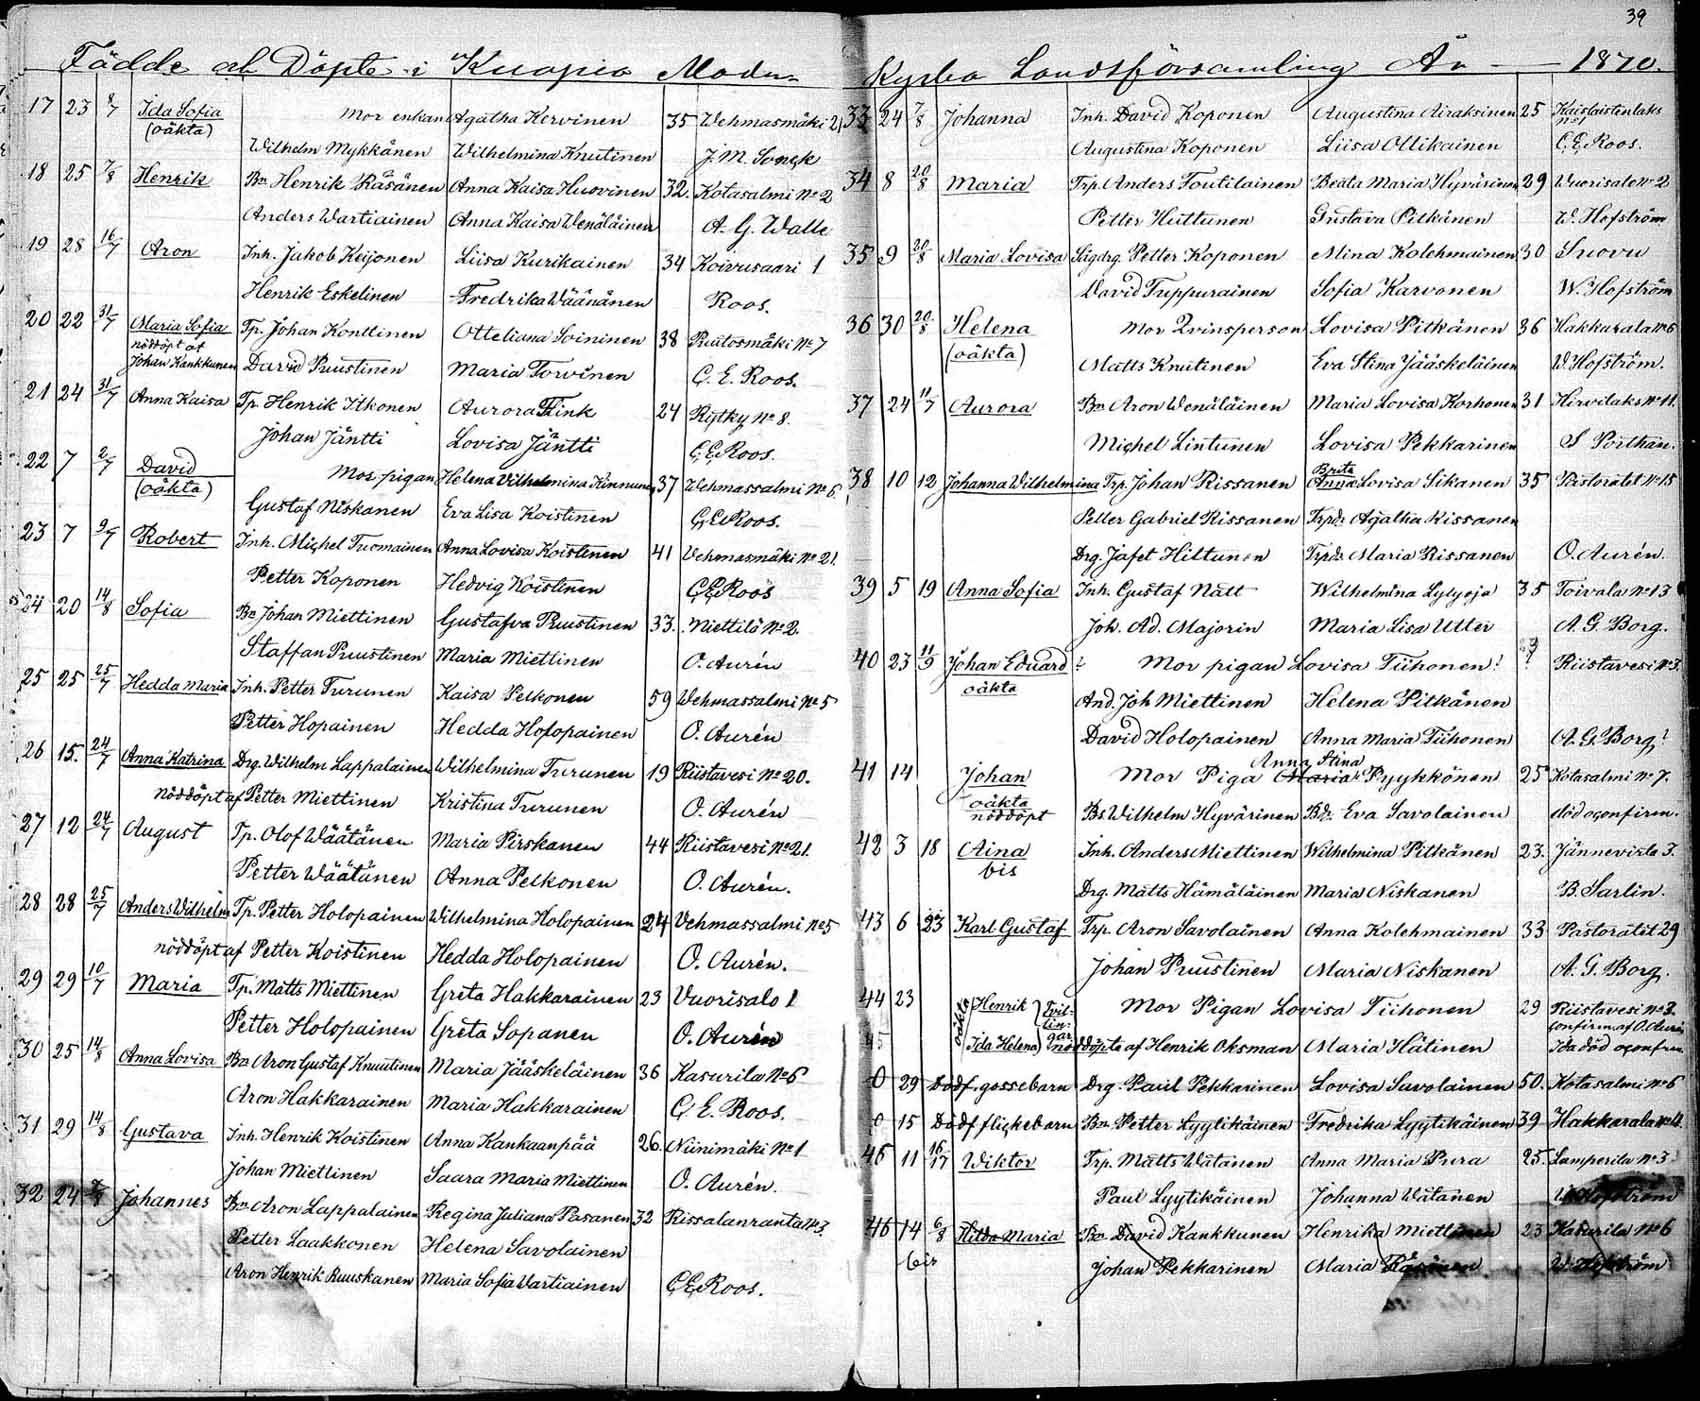 39
Födde och Döpte i Kuopio Moder-
17 23 8/7 Ida Sofia Mor enkan Agatha Kervinen 35 Wehmasmäki 2
(oäkta) Wilhelm Mykkänen Wilhelmina Knutinen J. M. Sonck
18 25 7/8 Henrik Bn Henrik Räsänen Anna Kaisa Huovinen 32. Kotasalmi No 2
Anders Wartiainen Anna Kaisa Wenäläinen A. G. Walle
19 28 16/7 Aron Inh. Jakob Keijonen Liisa Kurikainen 34 Koivusaari 1
Henrik Eskelinen Fredrika Wäänänen Roos.
20 22 31/7 Maria Sofia Tp. Johan Konttinen Otteliana Soininen 38 Ruutosmäki No 7
nöddöpt af
Johan Kankkunen David Puustinen Maria Torvinen C. E. Roos.
21 24 31/7 Anna Kaisa Tp. Henrik Itkonen Aurora Fink 24 Rytky No 8.
Johan Jäntti Lovisa Jäntti C. E. Roos.
22 7 2/7 David Mor pigan Helena Wilhelmina Kinnunen 37 Wehmassalmi No 6
(oäkta) Gustaf Niskanen Eva Lisa Koistinen C. E. Roos.
23 7 9/7 Robert Inh. Michel Tuomainen Anna Lovisa Koistinen 41 Vehmasmäki No 21.
Petter Koponen Hedvig Koistinen C. E. Roos
24 20 14/8 Sofia Bn Johan Miettinen Gustafva Puustinen 33. Miettilä No 2.
Staffan Puustinen Maria Miettinen O. Aurén
25 25 25/7 Hedda Maria Inh. Petter Turunen Kaisa Pelkonen 59 Wehmassalmi No 5
Petter Hopainen Hedda Holopainen O. Aurén
26 15. 24/7 Anna Katrina Drg. Wilhelm Lappalainen Wilhelmina Turunen 19 Riistavesi No 20.
nöddöpt af Petter Miettinen Kristina Turunen O. Aurén
27 12 24/7 August Tp. Olof Wäätänen Maria Pirskanen 44 Riistavesi No 21.
Petter Wäätänen Anna Pelkonen O. Aurén.
28 28 25/7 Anders Wilhelm Tp. Petter Holopainen Wilhelmina Holopainen 24 Vehmassalmi No 5
nöddöpt af Petter Koistinen Hedda Holopainen O. Aurén.
29 29 10/7 Maria Tp. Matts Miettinen Greta Hakkarainen 23 Vuorisalo 1
Petter Holopainen Greta Sopanen O. Aurén
30 25 14/8 Anna Lovisa Bn Aron Gustaf Knuutinen Maria Jääskeläinen 36 Kasurila No 6
Aron Hakkarainen Maria Hakkarainen C. E. Roos.
31 29 14/8 Gustava Inh. Henrik Koistinen Anna Kankaanpää 26. Niinimäki No 1
Johan Miettinen Saara Maria Miettinen O. Aurén.
32 24 Johannes Bn Aron Lappalainen Regina Juliana Pasanen 32 Rissalanranta No 3.
Petter Laakkonen Helena Savolainen
Aron Henrik Ruuskanen Maria Sofia Wartiainen C. E. Roos.
Kyrko Landsförsamling År 1870.
33 24 7/8 Johanna Inh. David Koponen Augustina Airaksinen 25 Kaislaistenlaks No 1
Augustina Koponen Liisa Ollikainen C. E. Roos.
34 8 20/8 Maria Trp. Anders Toutilainen Beata Maria Hyvärinen 29 Wuorisalo No 2
Petter Huttunen Gustava Pitkänen W. Hofström
35 9 20/8 Maria Lovisa Lägdrg. Petter Koponen Mina Kolehmainen 30 Suovu
David Tuppurainen Sofia Karvonen W. Hofström
36 30 20/8 Helena Mor Qvinsperson Lovisa Pitkänen 36 Hakkarala No 6
(oäkta) Matts Knutinen Eva Stina Jääskeläinen W. Hofström.
37 24 11/7 Aurora Bn Aron Wenäläinen Maria Lovisa Korhonen 31 Hirvilaks No 11.
Michel Lintunen Lovisa Pekkarinen S Porthan.
38 10 12 Johanna Wilhelmina Trp. Johan Rissanen Brita Anna Lovisa Sikanen 35 Pastoratet No 15
Petter Gabriel Rissanen Trpdr Agatha Rissanen
Drg. Jafet Hiltunen Trpdr Maria Rissanen O. Aurén.
39 5 19 Anna Sofia Inh. Gustaf Nätt Wilhelmina Lylyoja 35 Toivala No 13
Joh. Ad. Majorin Maria Lisa Utter A. G. Borg.
40 23 11/9 Johan Eduard ? Mor pigan Lovisa Tiihonen! ? Riistavesi No 3.
oäkta And. Joh Miettinen Helena Pitkänen
David Holopainen Anna Maria Tiihonen A. G. Borg?
41 14 Johan Mor Piga Anna Stina Maria Pyykkönen 25 Kotasalmi No 7.
oäkta
nöddöpt Bs Wilhelm Hyvärinen Bdr. Eva Savolainen död oconfirm.
42 3 18 Aina Inh. Anders Miettinen Wilhelmina Pitkänen 23. Jännevirta 3.
bis Drg. Matts Hämäläinen Maria Niskanen B. Sarlin.
43 6 23 Karl Gustaf Trp. Aron Savolainen Anna Kolehmainen 33 Pastoratet 29
Johan Puustinen Maria Niskanen A. G. Borg.
44 23 oäkta Henrik Tvillingar Mor Pigan Lovisa Tiihonen 29 Riistavesi No 3.
confirm af O. Aurén
45 Ida Helena nöddöpte af Henrik Oksman Maria Hätinen Ida död oconfirm
0 29 Dödf. gossebarn Drg. Paul Pekkarinen Lovisa Savolainen 50. Kotasalmi No 6
0 15 Dödf flickebarn Bn Petter Lyytikäinen Fredrika Lyytikäinen 39 Hakkarala No 4.
46 11 16/17 Wiktor Trp. Matts Wätänen Anna Maria Pura 25. Lamperila No 3
Paul Lyytikäinen Johanna Wätanen W. Hofström
46 14 6/8 Hilda Maria Bn David Kankkunen Henrika Miettinen 23 Kasurila No 6
bis Johan Pekkarinen Maria Räsänen W. Hofström